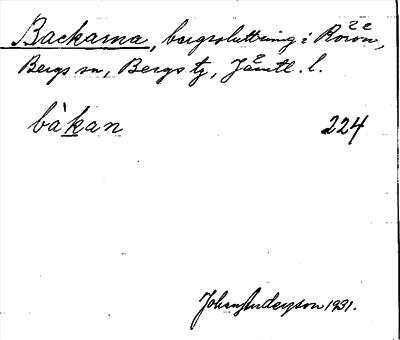 Backarna, bergsluttning i Rörön,
Bergs sn, Bergs tg, Jämtl. l.
bàkan 224
Johan Anderson 1931.